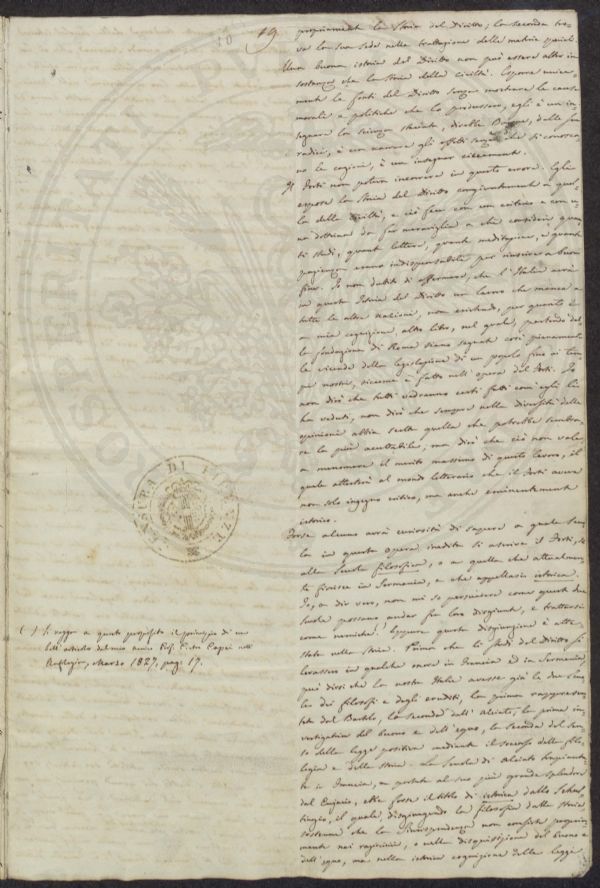 19
10
propriamente la Storia del Diritto; la seconda tro-
va la sua sede nella trattazione delle materie parziali.
Una buona istoria del Diritto non può essere altro in
sostanza che la Storia della civiltà. Esporre unica-
mente le fonti del Diritto senza mostrare le cause
morali e politiche che lo produssero, egli è un in-
segnare la scienza staccata, direbbe Bacone, dalle sue
radici, è un narrare gli effetti senza che si conosca-
no le cagioni, è un insegnar ciecamente.
Il Forti non poteva incorrere in questo errore. Egli
espose la Storia del Diritto congiuntamente a quel-
la della civiltà, e ciò fece con un criterio e con u-
na dottrina da far meraviglia a chi consideri quan-
ti studi, quante letture, quante meditazioni, e quanta
pazienza erano indispensabili per riuscire a buon
fine. Io non dubito di affermare, che l'Italia avrà
in questa Istoria del Diritto un lavoro che manca a
tutte le altre nazioni, non esistendo, per quanto è
a mia cognizione, altro libro, nel quale, partendo dal-
la fondazione di Roma siano segnate così pienamente
le vicende della legislazione di un popolo fino ai tem-
pi nostri, siccome è fatto nell'opera del Forti. Io
non dirò che tutti vedranno certi fatti com'egli li
ha veduti, non dirò che sempre nella diversità delle
opinioni abbia scelta quella che potrebbe sembra-
re la più accettabile, ma dirò che ciò non vale
a menomare il merito massimo di questo lavoro, il
quale attesterà al mondo letterario che il Forti aveva
non solo ingegno critico, ma anche eminentemente
istorico.
Forse alcuno avrà curiosità di sapere a quale Scuo-
la in questa opera inedita si ascriva il Forti, se
alla Scuola filosofica, o a quella che attualmen-
te fiorisce in Germania, e che appellasi istorica.
Io, a dir vero, non mi so persuadere come queste due
Scuole possano andar fra loro disgiunte, e trattarsi
come nemiche. Eppure questa disgiunzione è atte-
stata nella storia. Prima che li studi del Diritto si
levassero in qualche onore in Francia ed in Germania,
può dirsi che la nostra Italia avesse già le due Scuo-
le dei filosofi e degli eruditi, la prima rappresen-
tata dal Bartolo, la seconda dall'Alciato; la prima in-
vestigatrice del buono e dell'equo, la seconda del sen-
so della legge positiva mediante il soccorso della filo-
logia e della storia. La Scuola di Alciato trapianta-
ta in Francia, e portata al suo più grande splendore
dal Cujacio, ebbe forse il titolo di istorica dallo Schul-
tingio, il quale, disgiungendo la filosofia dalla storia
sostenne che la Giurisprudenza non consiste propria-
mente nei raziocinii, o nella disquisizione del buono e
dell'equo, ma nella istorica cognizione delle leggi
CENSURA DI FIRENZE
( ) Si vegga a questo proposito il principio di un
bell'articolo del mio amico Prof. Pietro Capei nell'
Antologia, Marzo 1827, pag. 17.